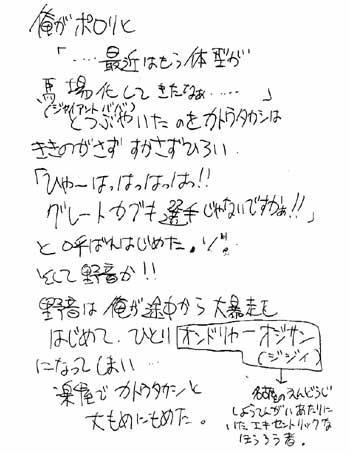 俺がポロリと
「……最近はもう体型が
馬場化してきたなぁ……」
(ジャイアントババ)
とつぶやいたのをカトウタカシは
ききのがさず すかさずひろい.
「ひゃーはっはっはっはっ!!
グレートカブキ選手じゃないですかぁ!!」
と呼ばれはじめた。
そして野音が!!
野音は俺が途中から大暴走を
はじめて、ひとり オンドリャーオジサン
(ジジイ)
になってしまい…
楽屋でカトウタカシと
大もめにもめた。
名古屋のえんどうじ
しょうてんがいあたりに
いたエキセントリックな
ほうろう者。